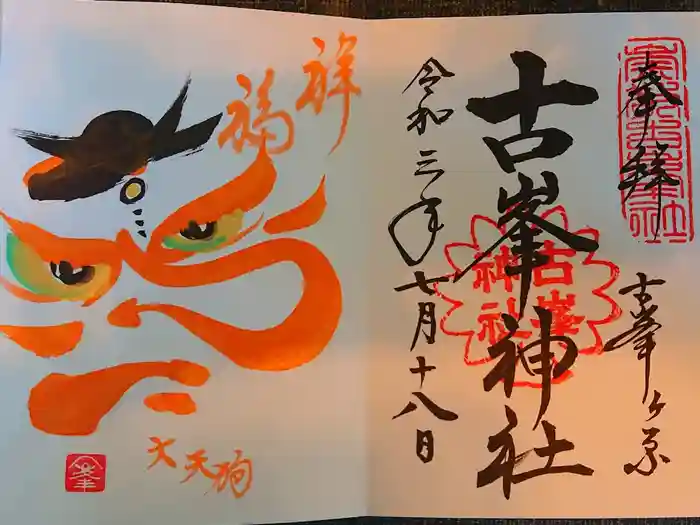 奉拝
古峯ヶ原
古峯神社
古峯神社
令和三年七月十八日
祥福
大天狗